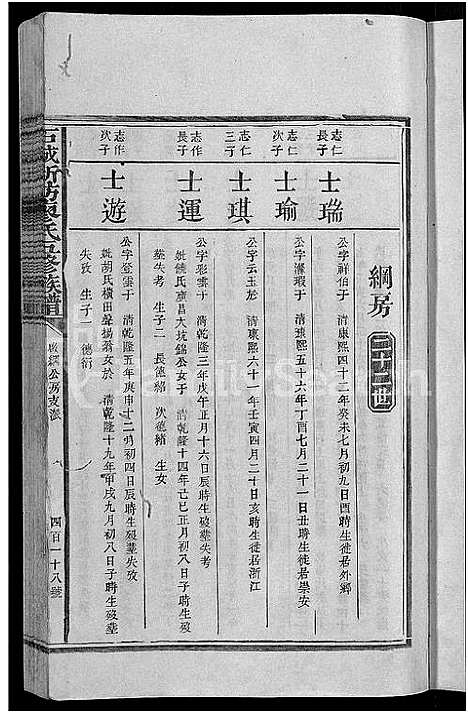 綱房
二十二世
志仁長子
士瑞
公字祥伯于 清康熙四十二年癸未七月初九日戌時生徙居外鄉
志仁次子
士瑜
公字 瑕于 清康熙五十六年丁酉七月二十一日丑時生徙居崇安
志仁三子
士琪
公字云玉於 清康熙六十一年壬寅四月二十日亥時生徙居浙江
志作長子
士運
公字彩雲于 清乾隆三年戊午正月十六日辰時生歿墓失考
娶 氏 昌大坑錦公女于 清乾隆十四年己巳正月初八日子時生歿
墓失考 生子二 長德緒 次德緒 生女
志作次子
士遊
公字登雲于 清乾隆五年庚申十二月初四日辰時生歿墓失攷
娶胡氏橫田聲揚翁女於 清乾隆十九年甲戌九月初八日子時生歿墓
失攷 生子一 德衍
石城 氏 修族譜
公房支派
四百一十八號